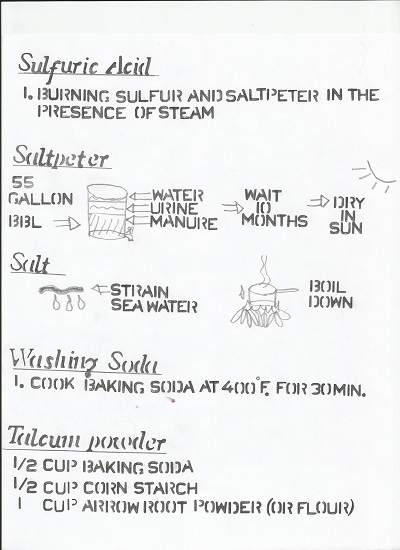 Sulfuric Acid
1. BURNING SULFUR AND SALTPETER IN THE
PRESENCE OF STEAM
Saltpeter
55
GALLON
BBL
WATER
URINE
MANURE
WAIT
10
MONTHS
DRY
IN
SUN
Salt
STRAIN
SEA WATER
BOIL
DOWN
Washing Soda
1. COOK BAKING SODA AT 400°F. FOR 30 MIN.
Talcum powder
1/2 CUP BAKING SODA
1/2 CUP CORN STARCH
1 CUP ARROW ROOT POWDER (OR FLOUR)